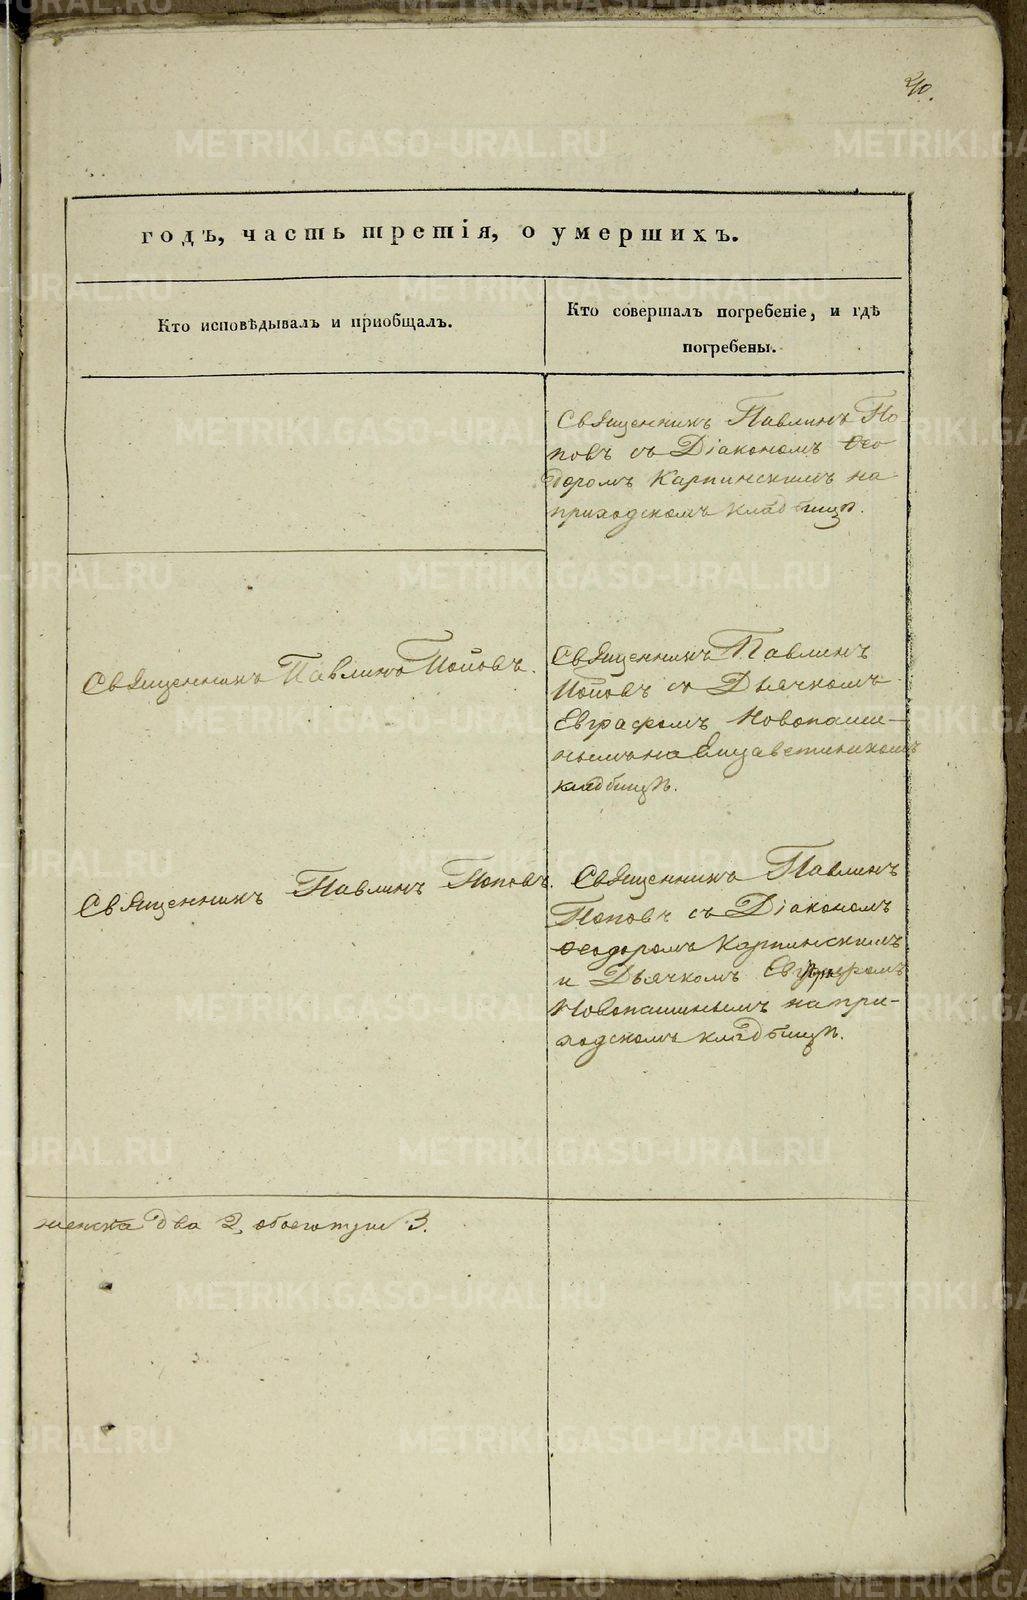 40.
годъ, часть третія, о умершихъ.
Кто исповѣдывалъ и пріобщалъ.
Кто совершалъ погребеніе, и гдѣ
погребены.
Священникъ Павлинъ По
повъ съ Діакономъ Ѳео
доромъ Карпинскимъ на
приходскомъ кладбищѣ.
Священникъ Павлинъ Поповъ.
Священникъ Павлинъ
Поповъ съ Дьячкомъ
Евграфомъ Новопаши-
нымъ на Елизаветинскомъ
кладбищѣ.
Священникъ Павлинъ Поповъ.
Священникъ Павлинъ
Поповъ съ Діакономъ
Ѳеодоромъ Карпинскимъ
и Дьячкомъ Евграфомъ
Новопашинымъ на при-
ходскомъ кладбищѣ.
женска два 2, обоего пула 3.
METRIKI.GASO-URAL.RU